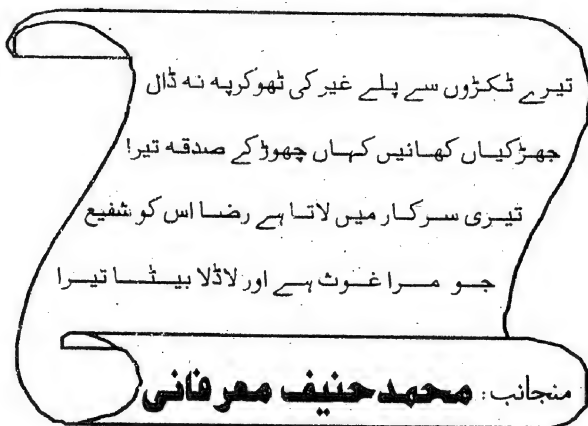 تیرے ٹکڑوں سے پلے غیر کی ٹھوکر پہ نہ ڈال
جھڑکیاں کھائیں کہاں چھوڑ کے صدقہ تیرا!
تیری سرکار میں لاتا ہے رضا اس کو شفیع
جو مرا غوث ہے اور لاڈلا بیٹا تیرا
منجانب: محمد حنیف معرفانی